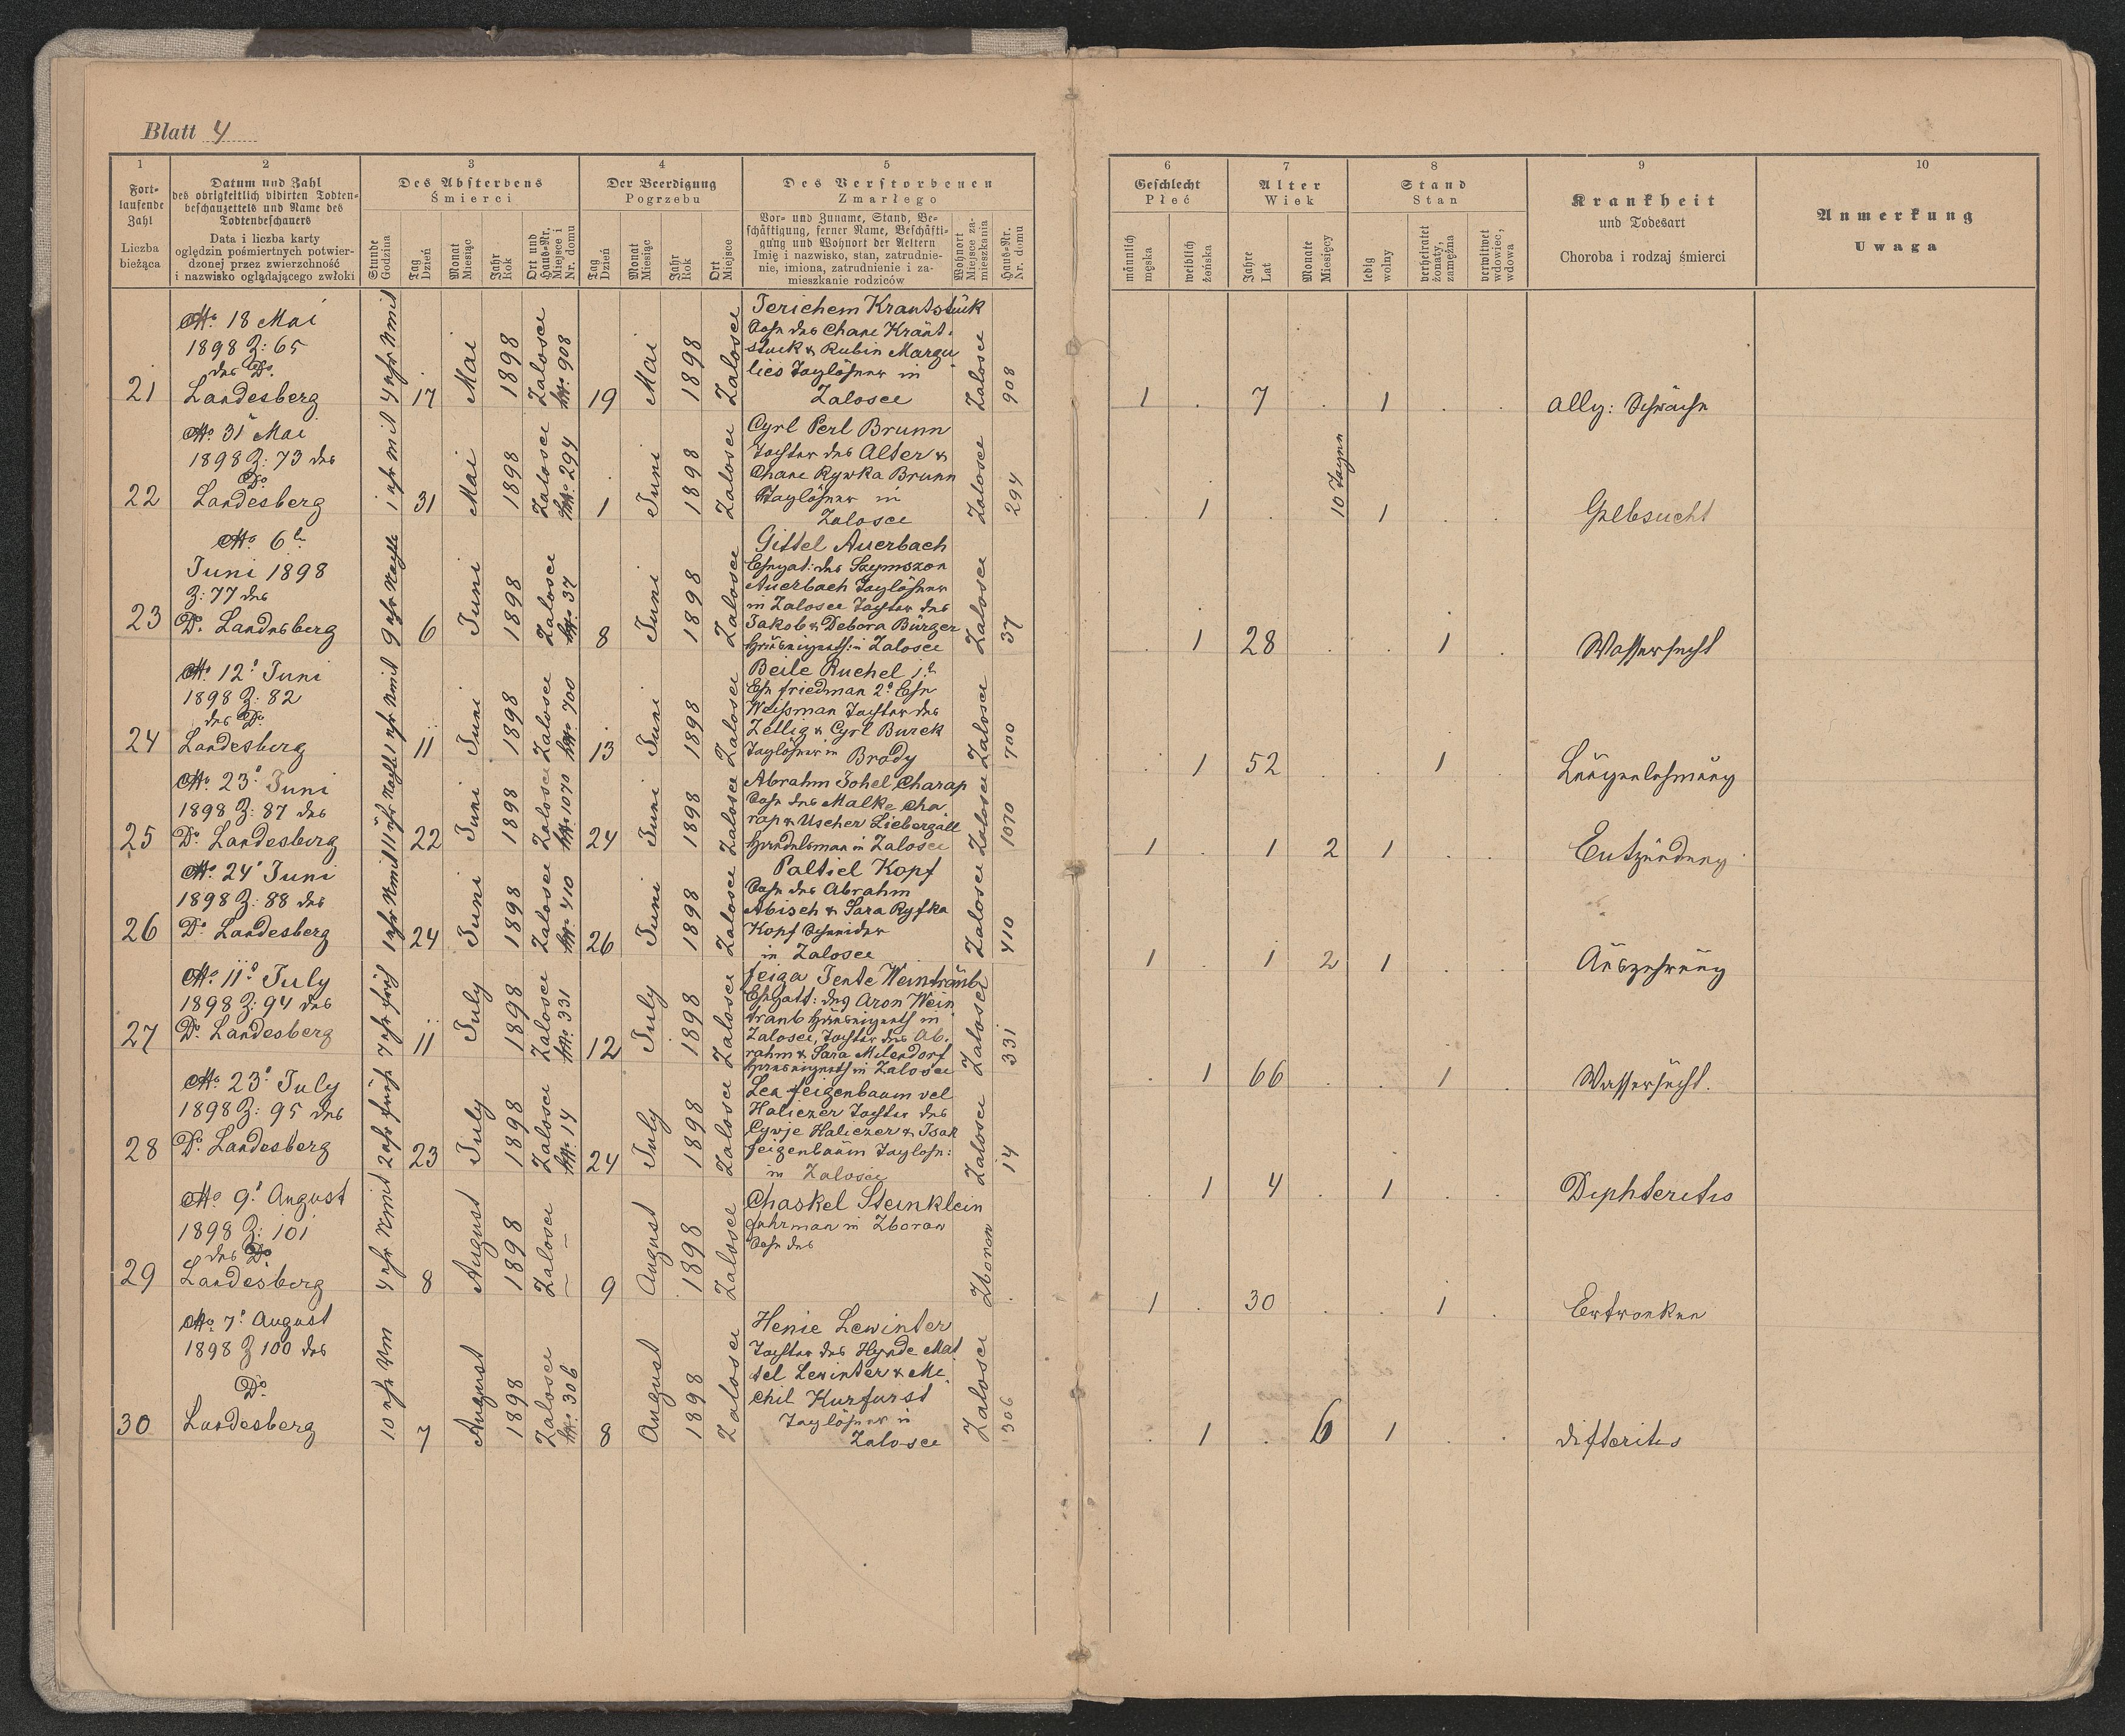 Blatt 4
1 2 3 4 5
Fort-
laufende
Zahl
Liczba
bieżąca
Datum und Zahl
des obrigkeitlich vidirten Todten-
beschauzettels und Name des
Todtenbeschauers
Data i liczba karty
oględzin pośmiertnych potwier-
dzonej przez zwierzchność
i nazwisko oglądającego zwłoki
Des Absterbens
Śmierci
Stunde
Godzina
Tag
Dzień
Monat
Miesiąc
Jahr
Rok
Ort und
Haus-Nr.
Miejsce i
Nr. domu
Der Beerdigung
Pogrzebu
Tag
Dzień
Monat
Miesiąc
Jahr
Rok
Ort
Miejsce
Des Verstorbenen
Zmarłego
Vor- und Zuname, Stand, Be-
schäftigung, ferner Name, Beschäfti-
gung und Wohnort der Aeltern
Imię i nazwisko, stan, zatrudnie-
nie, imiona, zatrudnienie i za-
mieszkanie rodziców
Wohnort
Miejsce za-
mieszkania
Haus-Nr.
Nr. domu
6 7 8 9 10
Geschlecht
Płeć
männlich
męska
weiblich
żeńska
Alter
Wiek
Jahre
Lat
Monate
Miesięcy
Stand
Stan
ledig
wolny
verheiratet
żonaty,
zamężna
verwitwet
wdowiec,
wdowa
Krankheit
und Todesart
Choroba i rodzaj śmierci
Anmerkung
Uwaga
21
18 Mai
1898 Z: 65
des Dr.
Landesberg
4 uhr Nmit
17 Mai 1898 Zalosce 908
19 Mai 1898 Zalosce
Jerichem Krantstück
Sohn des Chane Kränt-
stuck & Rubin Margu
lies Taglöhner in
Zalosce
Zalosce 908
1 . 7 . 1 . .
Allg: Schwäche
22
31 Mai
1898 Z: 73 des
Dr.
Landesberg
1 uhr mit
31 Mai 1898 Zalosce 294
1 Juni 1898 Zalosce
Cyrl Perl Brunn
Tochter des Alter &
Chane Rywka Brunn
Taglöhner in
Zalosce
Zalosce 294
. 1 . 10 Tagen 1 . .
Gelbsucht
23
6t
Juni 1898
Z: 77 des
Dr. Landesberg
9 uhr Nachts
6 Juni 1898 Zalosce 37
8 Juni 1898 Zalosce
Gittel Auerbach
Ehegat: des Szymszon
Auerbach Taglöhner
in Zalosce Tochter des
Jakob & Debora Bürger
in Zalosce
Zalosce 37
. 1 28 . . 1 .
Wassersucht
24
12 Juni
1898 Z: 82
des Dr.
Landesberg
1 uhr Nmit
11 Juni 1898 Zalosce 700
13 Juni 1898 Zalosce
Beile Ruchel 1t
Ehe Friedman 2t Ehe
Weissman Tochter des
Zellig & Cyrl Burek
Taglöhner in Brody
Zalosce 700
. 1 52 . . 1 .
Lungenlähmung
25
23 Juni
1898 Z: 87 des
Dr. Landesberg
11 uhr Nachts
22 Juni 1898 Zalosce 1070
24 Juni 1898 Zalosce
Abrahm Johel Charap
Sohn des Malke Cha
rap & Uscher Liebergall
Handelsman in Zalosce
Zalosce 1070
1 . 1 2 1 . .
Entzündung
26
24 Juni
1898 Z: 88 des
Dr. Landesberg
1 uhr Nmit
24 Juni 1898 Zalosce 410
26 Juni 1898 Zalosce
Paltiel Kopf
Sohn des Abrahm
Abisch & Sara Ryfka
Kopf Schneider
in Zalosce
Zalosce 410
1 . 1 2 1 . .
Auszehrung
27
11 July
1898 Z: 94 des
Dr. Landesberg
7 uhr früh
11 July 1898 Zalosce 331
12 July 1898 Zalosce
Feiga Jente Weintraub
Ehegatt: des Aron Wein
traub in
Zalosce, Tochter des Ab.
rahm & Sara Milendorf
in Zalosce
Zalosce 331
. 1 66 . . 1 .
Wassersucht.
28
23 July
1898 Z: 95 des
Dr. Landesberg
2 uhr früh
23 July 1898 Zalosce 14
24 July 1898 Zalosce
Lea Feigenbaum vel
Haliczer Tochter des
Cywje Haliczer & Isak
Feigenbaum Taglöhn:
in Zalosce
Zalosce 14
. 1 4 . 1 . .
Diphteritis
29
9 August
1898 Z: 101
des Dr.
Landesberg
4 uhr Nmit
8 August 1898 Zalosce —
9 August 1898 Zalosce
Chaskel Steinklein
Fuhrman in Zborow
Sohn des
Zborow .
1 . 30 . . 1 .
Ertrunken
30
7 August
1898 Z 100 des
Dr.
Landesberg
10 uhr Vm
7 August 1898 Zalosce 306
8 August 1898 Zalosce
Henie Lewinter
Tochter des Hynde Mat
tel Lewinter & Me.
chil Kurfurst
Taglöhner in
Zalosce
Zalosce 306
. 1 . 6 1 . .
difteritis